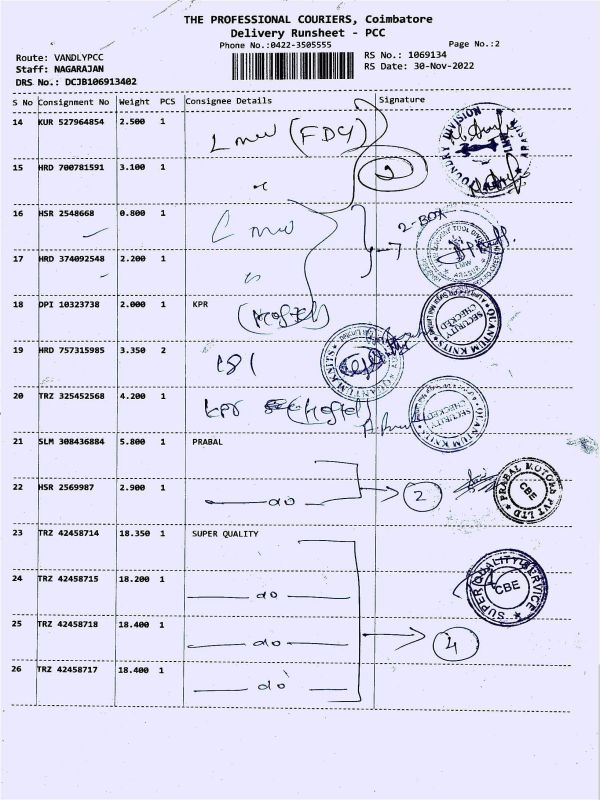 THE PROFESSIONAL COURIERS, Coimbatore
Delivery Runsheet - PCC
Phone No.:0422-3505555
Page No.:2
Route: VANDLYPCC
Staff: NAGARAJAN
DRS No.: DCJB106913402
RS No.: 1069134
RS Date: 30-Nov-2022
S No Consignment No Weight PCS Consignee Details Signature
14 KUR 527964854 2.500 1 Lmw (FDY)
FOUNDRY DIVISION
LMW
15 HRD 700781591 3.100 1 "
2
16 HSR 2548668 0.800 1 Lmw
2-BOX
17 HRD 374092548 2.200 1 "
18 DPI 10323738 2.000 1 KPR
(Hostel)
QUANTUM KNITS
SECURITY CHECKED
19 HRD 757315985 3.350 2
QUANTUM KNITS
20 TRZ 325452568 4.200 1 kpr (Hostel)
QUANTUM KNITS
SECURITY CHECKED
21 SLM 308436884 5.800 1 PRABAL
22 HSR 2569987 2.900 1 do
2
PRABAL MOTORS PVT LTD
CBE
23 TRZ 42458714 18.350 1 SUPER QUALITY
24 TRZ 42458715 18.200 1 do
SUPER QUALITY SERVICE
CBE
25 TRZ 42458718 18.400 1 do
4
26 TRZ 42458717 18.400 1 do